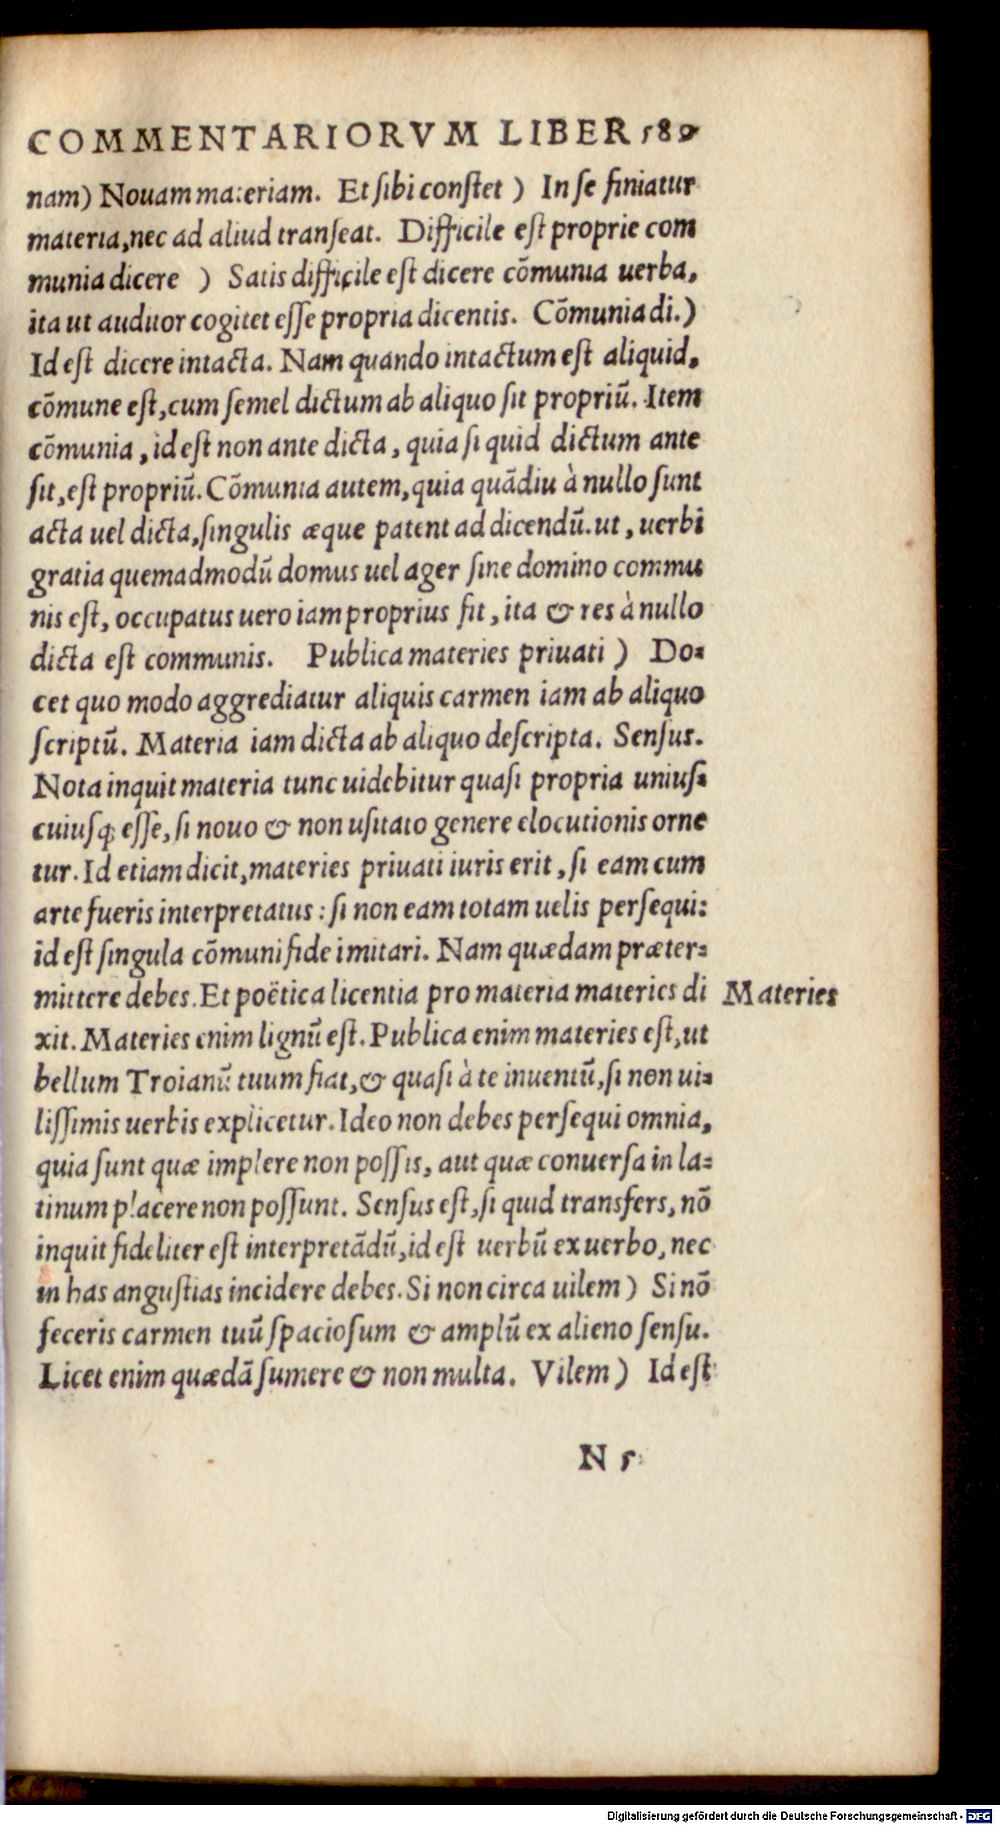 COMMENTARIORVM LIBER 589
nam) Nouam materiam. Et sibi constet ) In se finiatur
materia, nec ad aliud transeat. Difficile est proprie com
munia dicere ) Satis difficile est dicere cōmunia uerba,
ita ut auditor cogitet esse propria dicentis. Cōmunia di.)
Id est dicere intacta. Nam quando intactum est aliquid,
cōmune est, cum semel dictum ab aliquo sit propriū. Item
cōmunia, id est non ante dicta, quia si quid dictum ante
sit, est propriū. Cōmunia autem, quia quādiu à nullo sunt
acta uel dicta, singulis æque patent ad dicendū. ut, uerbi
gratia quemadmodū domus uel ager sine domino commu
nis est, occupatus uero iam proprius fit, ita & res à nullo
dicta est communis. Publica materies priuati ) Do-
cet quo modo aggrediatur aliquis carmen iam ab aliquo
scriptū. Materia iam dicta ab aliquo descripta. Sensus.
Nota inquit materia tunc uidebitur quasi propria unius-
cuiusq; esse, si nouo & non usitato genere elocutionis orne
tur. Id etiam dicit, materies priuati iuris erit, si eam cum
arte fueris interpretatus: si non eam totam uelis persequi:
id est singula cōmuni fide imitari. Nam quædam præter-
mittere debes. Et poëtica licentia pro materia materies di
Materies
xit. Materies enim lignū est. Publica enim materies est, ut
bellum Troianū tuum fiat, & quasi à te inuentū, si non ui-
lissimis uerbis explicetur. Ideo non debes persequi omnia,
quia sunt quæ implere non possis, aut quæ conuersa in la-
tinum placere non possunt. Sensus est, si quid transfers, nō
inquit fideliter est interpretādū, id est uerbū ex uerbo, nec
in has angustias incidere debes. Si non circa uilem ) Si nō
feceris carmen tuū spaciosum & amplū ex alieno sensu.
Licet enim quædā sumere & non multa. Vilem ) Id est
N 5
Digitalisierung gefördert durch die Deutsche Forschungsgemeinschaft - DFG